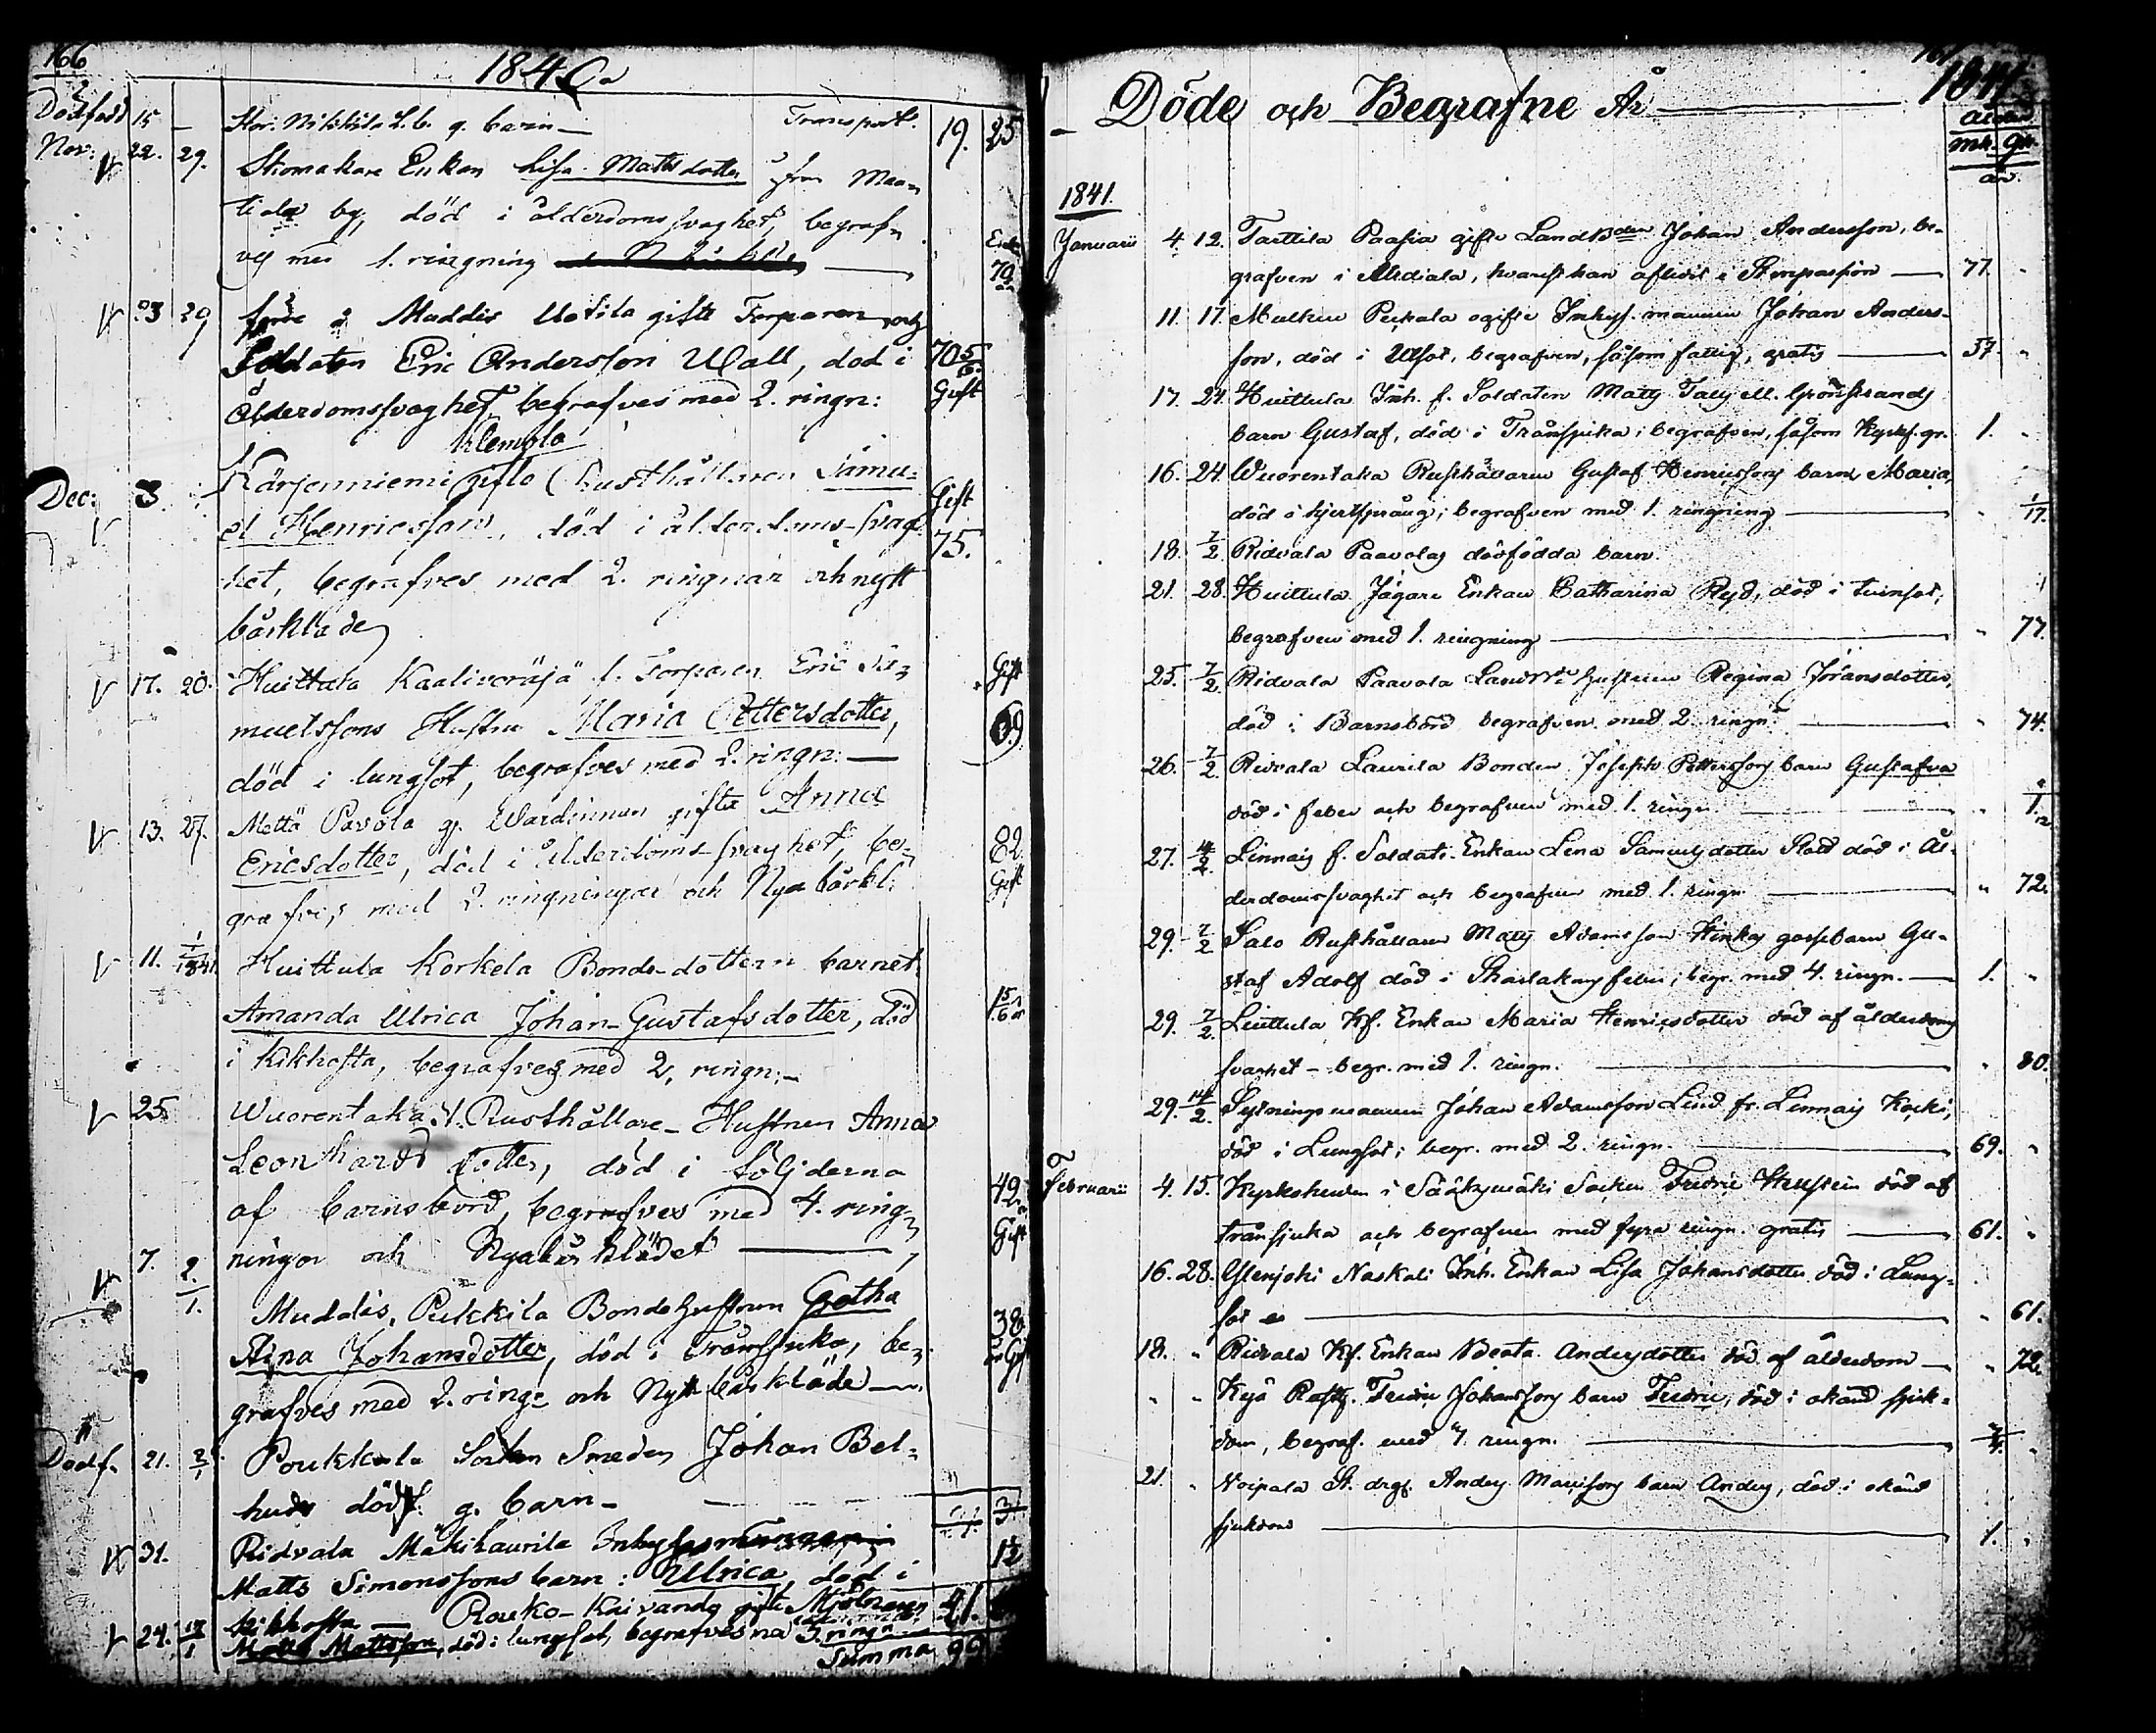 166
1840
Dödfödd 15 — Stor. Nikkila L. b. g. barn — Transport. 19. 25
Nov: 22. 29. Enkan Lisa Mattsdotter från Maa-
tiala by, död i ålderdomssvaghet, begraf-
ves med 1. ringning — Enka 79
23 29 förre å Muddis Uotila gifte Torparen och
Soldaten Eric Andersson Wall, död i 70 5/6.
Ålderdomssvaghet, begrafves med 2. ringn: Gift
Klemola
Dec: 3. Kärjenniemi gifte Rusthållaren Samu- Gift
el Henricsson, död i ålderdoms-svag- 75.
het, begrafves med 2. ringnar och nytt
bårkläde
17. 20. Huittula Kaalivoräjä f. Torparen Eric Sa- Gift
muelssons Hustru Maria Pettersdotter, 69
död i lungsot, begrafves med 2. ringn: —
13. 27. Mettä Pavola gl. Wärdinnan gifta Anna
Ericsdotter, död i ålderdoms-svaghet, be- 82.
grafves med 2. ringningar och Nya bårkl: Gift
11. 1/1841 Huittula Korkela Bonde-dottern barnet
Amanda Ulrica Johan-Gustafsdotter, död 1 5/6 år
i Kikhosta, begrafves med 2. ringn: —
25 Wuorentaka f. Rusthållare-Hustrun Anna
Leonhardsdotter, död i följderna
af barnsbörd, begrafves med 4. ring- 42.
ningar och Nya bårklädet — Gift
7. 2/1. Muddis, Pukkila Bondehustrun Gotha
Aina Johansdotter, död i Trånsjuka, be- 38
grafves med 2. ring: och Nytt bårkläde —
Dödf. 21. 2/1 Poukkala Socken Smeden Johan Bel-
huds dödf. g. barn —
31. Ridvala Mäkilaurila
Matts Simonssons barn: Ulrica, död i 1 1/2
kikhosta — Rouko-Knivando gifte Mjölnaren 21.
24. Matts Mattsson, död i lungsot, begrafves med 3. ringn.
Summa
Döde och Begrafne År — 1841
Ålder
Mk. Qk.
år.
1841.
Januarii 4. 12. Tarttila Paasia gifte Landbden Johan Andersson, be-
grafven i Mediala, hvarest han aflidit i — 77. "
11. 17. Mulkin Peckala ogifte Inhys. mannen Johan Anders-
son, död i Utsot, begrafven, såsom fattig, gratis — 57. "
17. 24. Huittula Inh. f. Soldaten Matts Taly ell. Grönstrands
barn Gustaf, död i Trånsjuka; begrafven, såsom Kyrkf. gr. 1. "
16. 24. Wuorentaka Rusthållaren Gustaf Henricssons barn Maria,
död i hjertsprång; begrafven med 1. ringning — " 1/17.
18. 7/2 Ridvala Paavolas dödfödda barn.
21. 28. Huittula Jägare Enkan Catharina Ryd, död i tvinsot,
begrafven med 1. ringning — " 77.
25. 7/2. Ridvala Paavola Hustrun Regina Jöransdotter,
död i Barnsbörd begrafven med 2. ringn: — " 74.
26. 7/2. Ridvala Laurila Bonden Joseph Petterssons barn Gustafva
död i feber och begrafven med 1. ringn. — " 1/12
27. 14/2. Linnais f. Soldats-Enkan Lena Samuelsdotter död i Ål-
derdomssvaghet och begrafven med 1. ringn. — " 72.
29. 7/2 Salo Rusthållaren Matts Adamsson Hinkas gossebarn Gu-
staf Adolf död i Sharlakansfeber; begr. med 4. ringn. — 1. "
29. 7/2. Liuttula Kf. Enkan Maria Henricsdotter död af ålderdoms
svaghet — begr. med 1. ringn. — " 80.
29. 14/2. Sytningsmannen Johan Adamsson Lind fr. Linnais Kocki,
död i Lungsot; begr. med 2. ringn. — 69. "
Februarii 4. 15. Kyrkoherden i Sääksmäki Socken Fredric död af
trånsjuka och begrafven med fyra ringn. gratis — 61. "
16. 28. Ylenjoki Naskali Inh. Enkan Lisa Johansdotter död i Lung-
sot — " 61.
18. " Ridvala Kf. Enkan Beata Andersdotter död af ålderdom — " 72.
" " Kyä Rusth. Fredric Johanssons barn Fredric, död i okänd sjuk-
dom, begraf. med 4. ringn. —
21. " Voipala St. drg. Anders barn Anders, död i okänd
sjukdom — 1. "